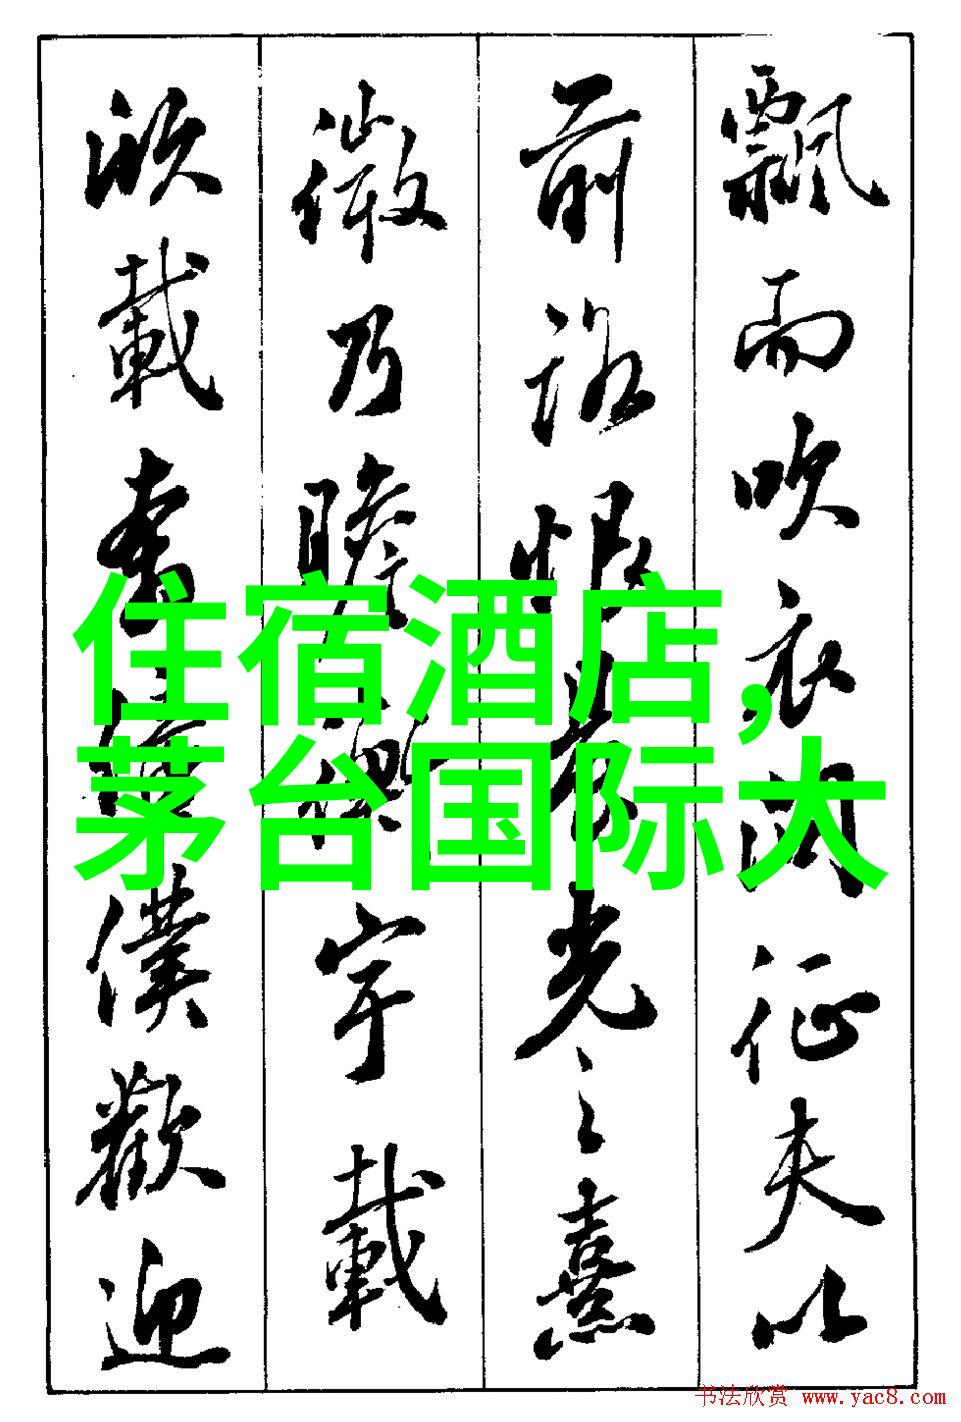 飄而吹衣問征夫以
前路恨晨光之熹
微乃瞻衡宇載
欣載奔僮僕歡迎
住宿酒店,
茅台国际大
书法欣赏 www.yac8.com